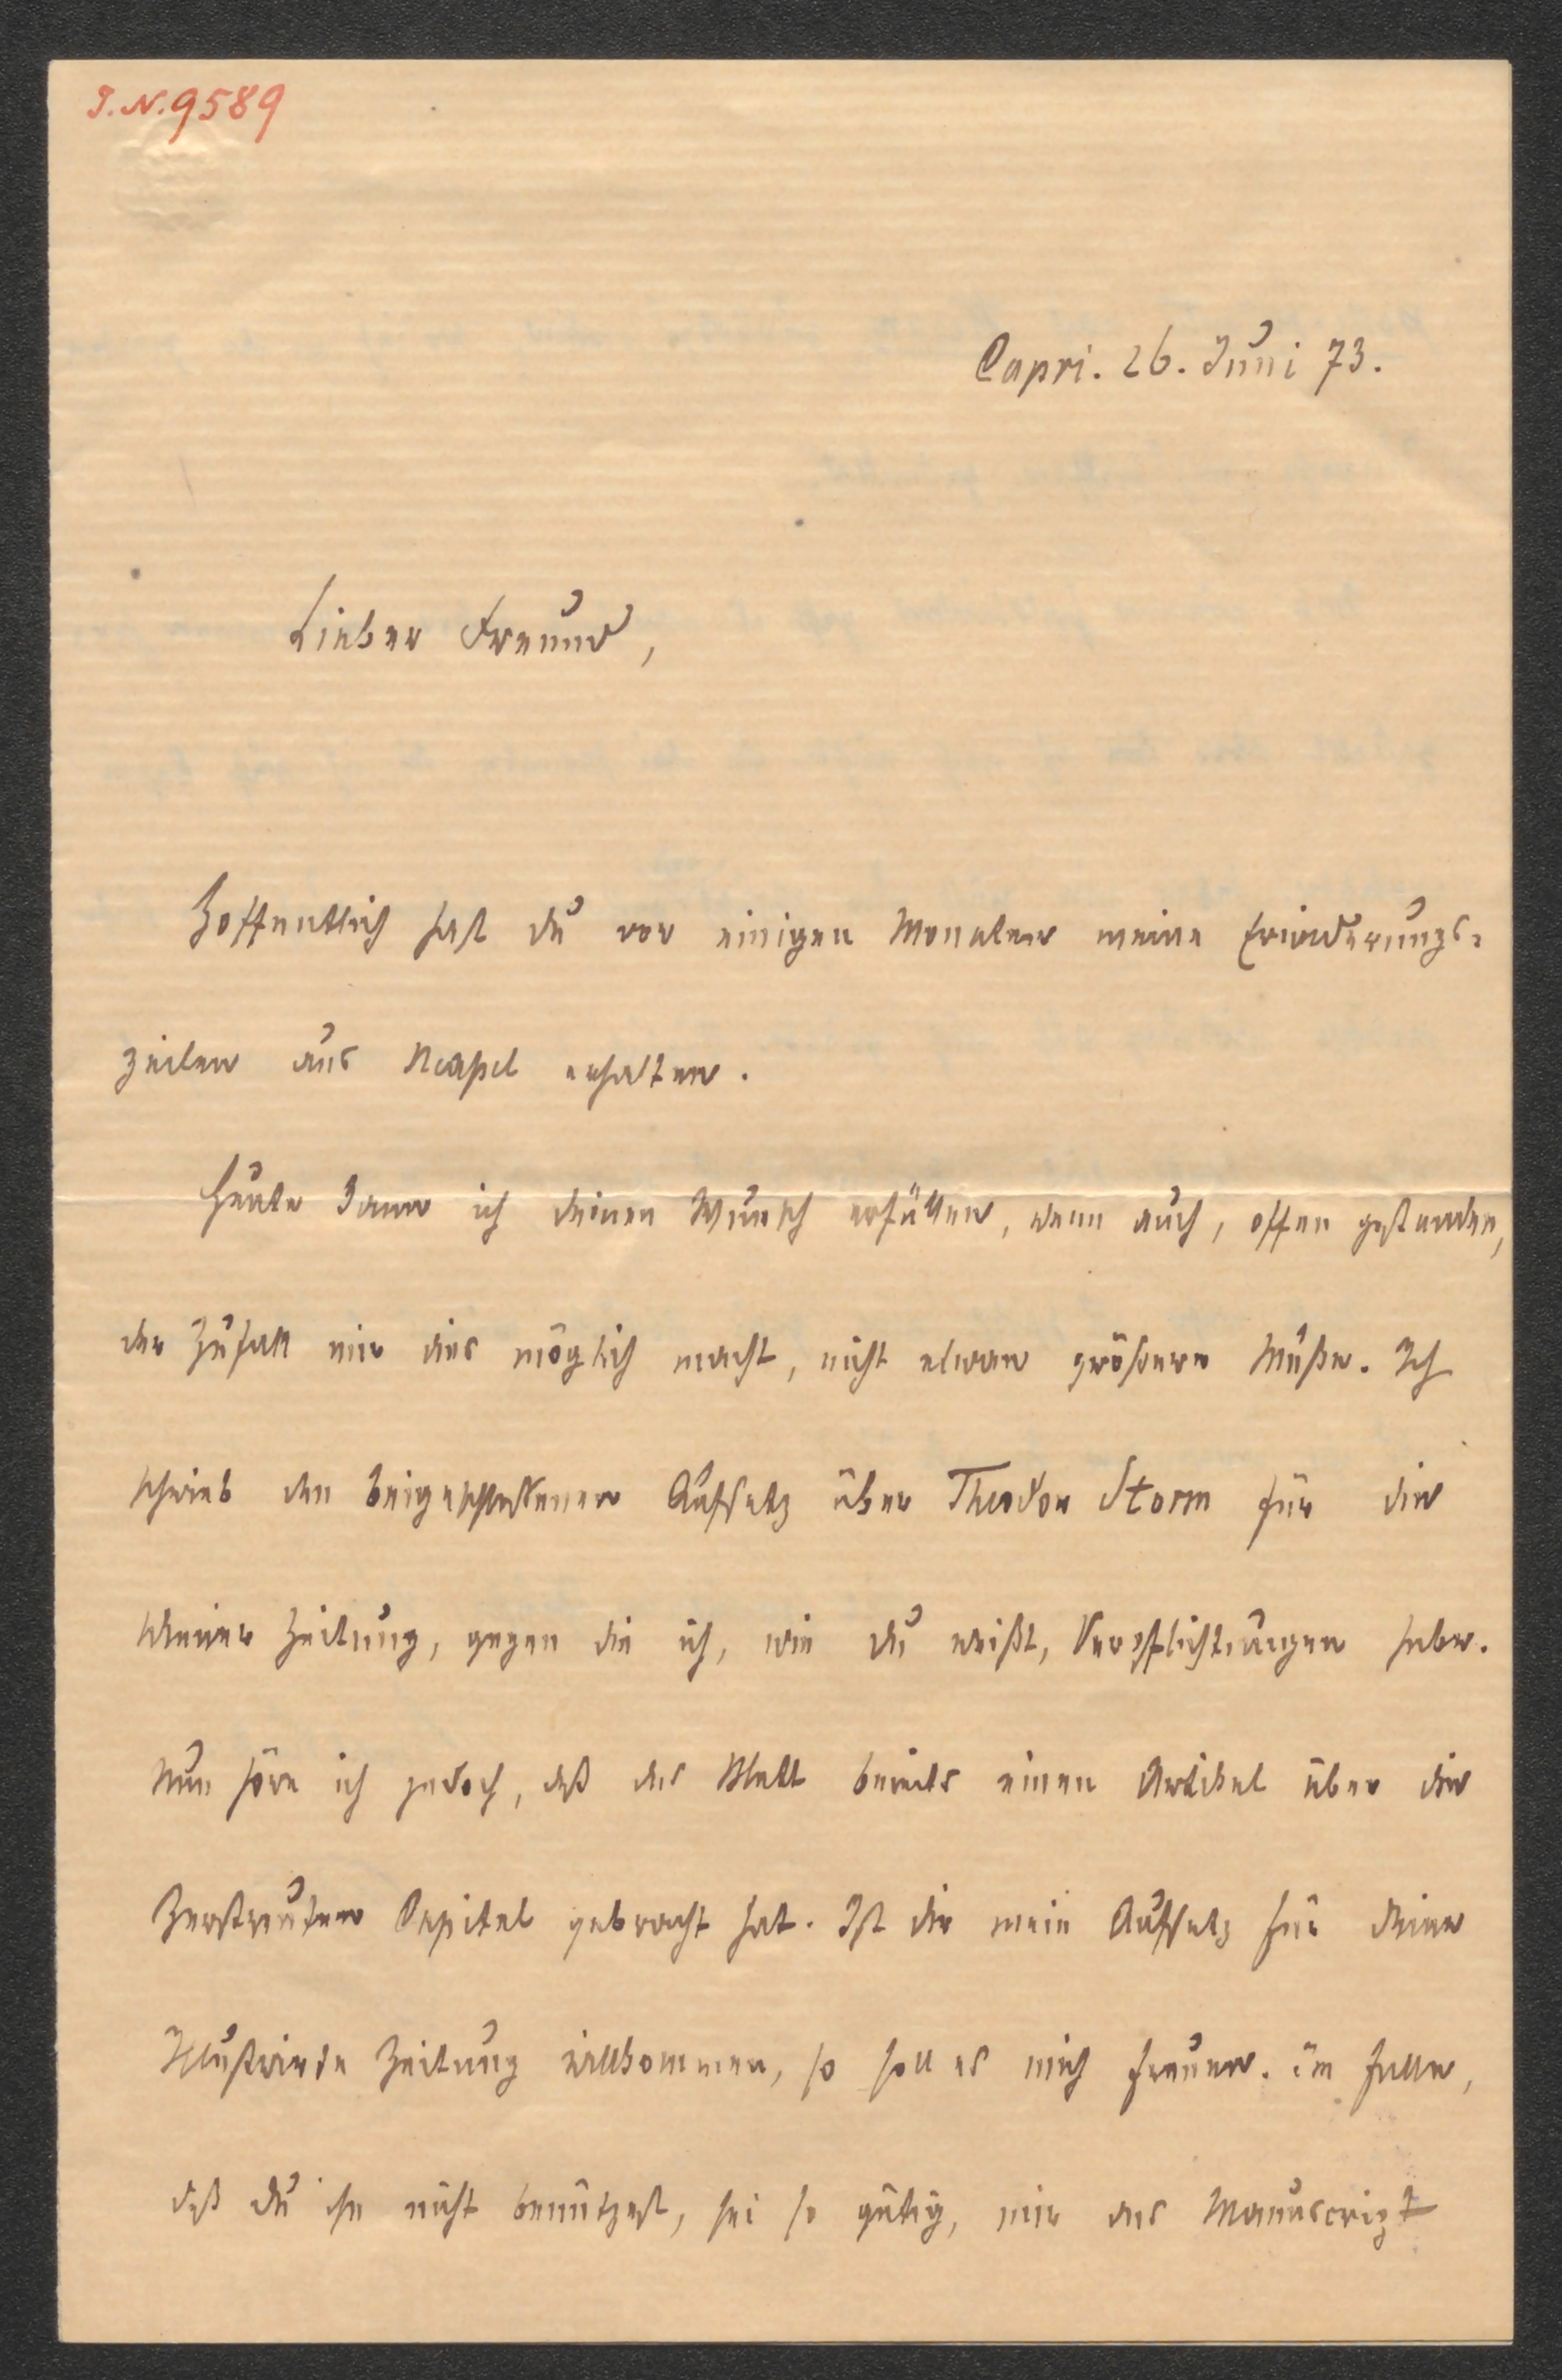 I.N. 9589
Capri. 26. Juni 73.
Lieber Freund,
Hoffentlich hast du vor einigen Monaten meine Erinnerungs-
zeilen aus Neapel erhalten.
Heute kann ich deinen Wunsch erfüllen, wenn auch, offen gestanden,
der Zufall mir dies möglich macht, nicht etwa größere Muße. Ich
schrieb den beigeschlossenen Aufsatz über Theodor Storm für die
Wiener Zeitung, gegen die ich, wie du weißt, Verpflichtungen habe.
Nun höre ich jedoch, daß das Blatt bereits einen Artikel über die
Zerstreuten Capitel gebracht hat. Ist dir mein Aufsatz für deine
Illustrirte Zeitung willkommen, so soll es mich freuen. im Falle,
daß du ihn nicht benützest, sei so gütig, mir das Manuscript